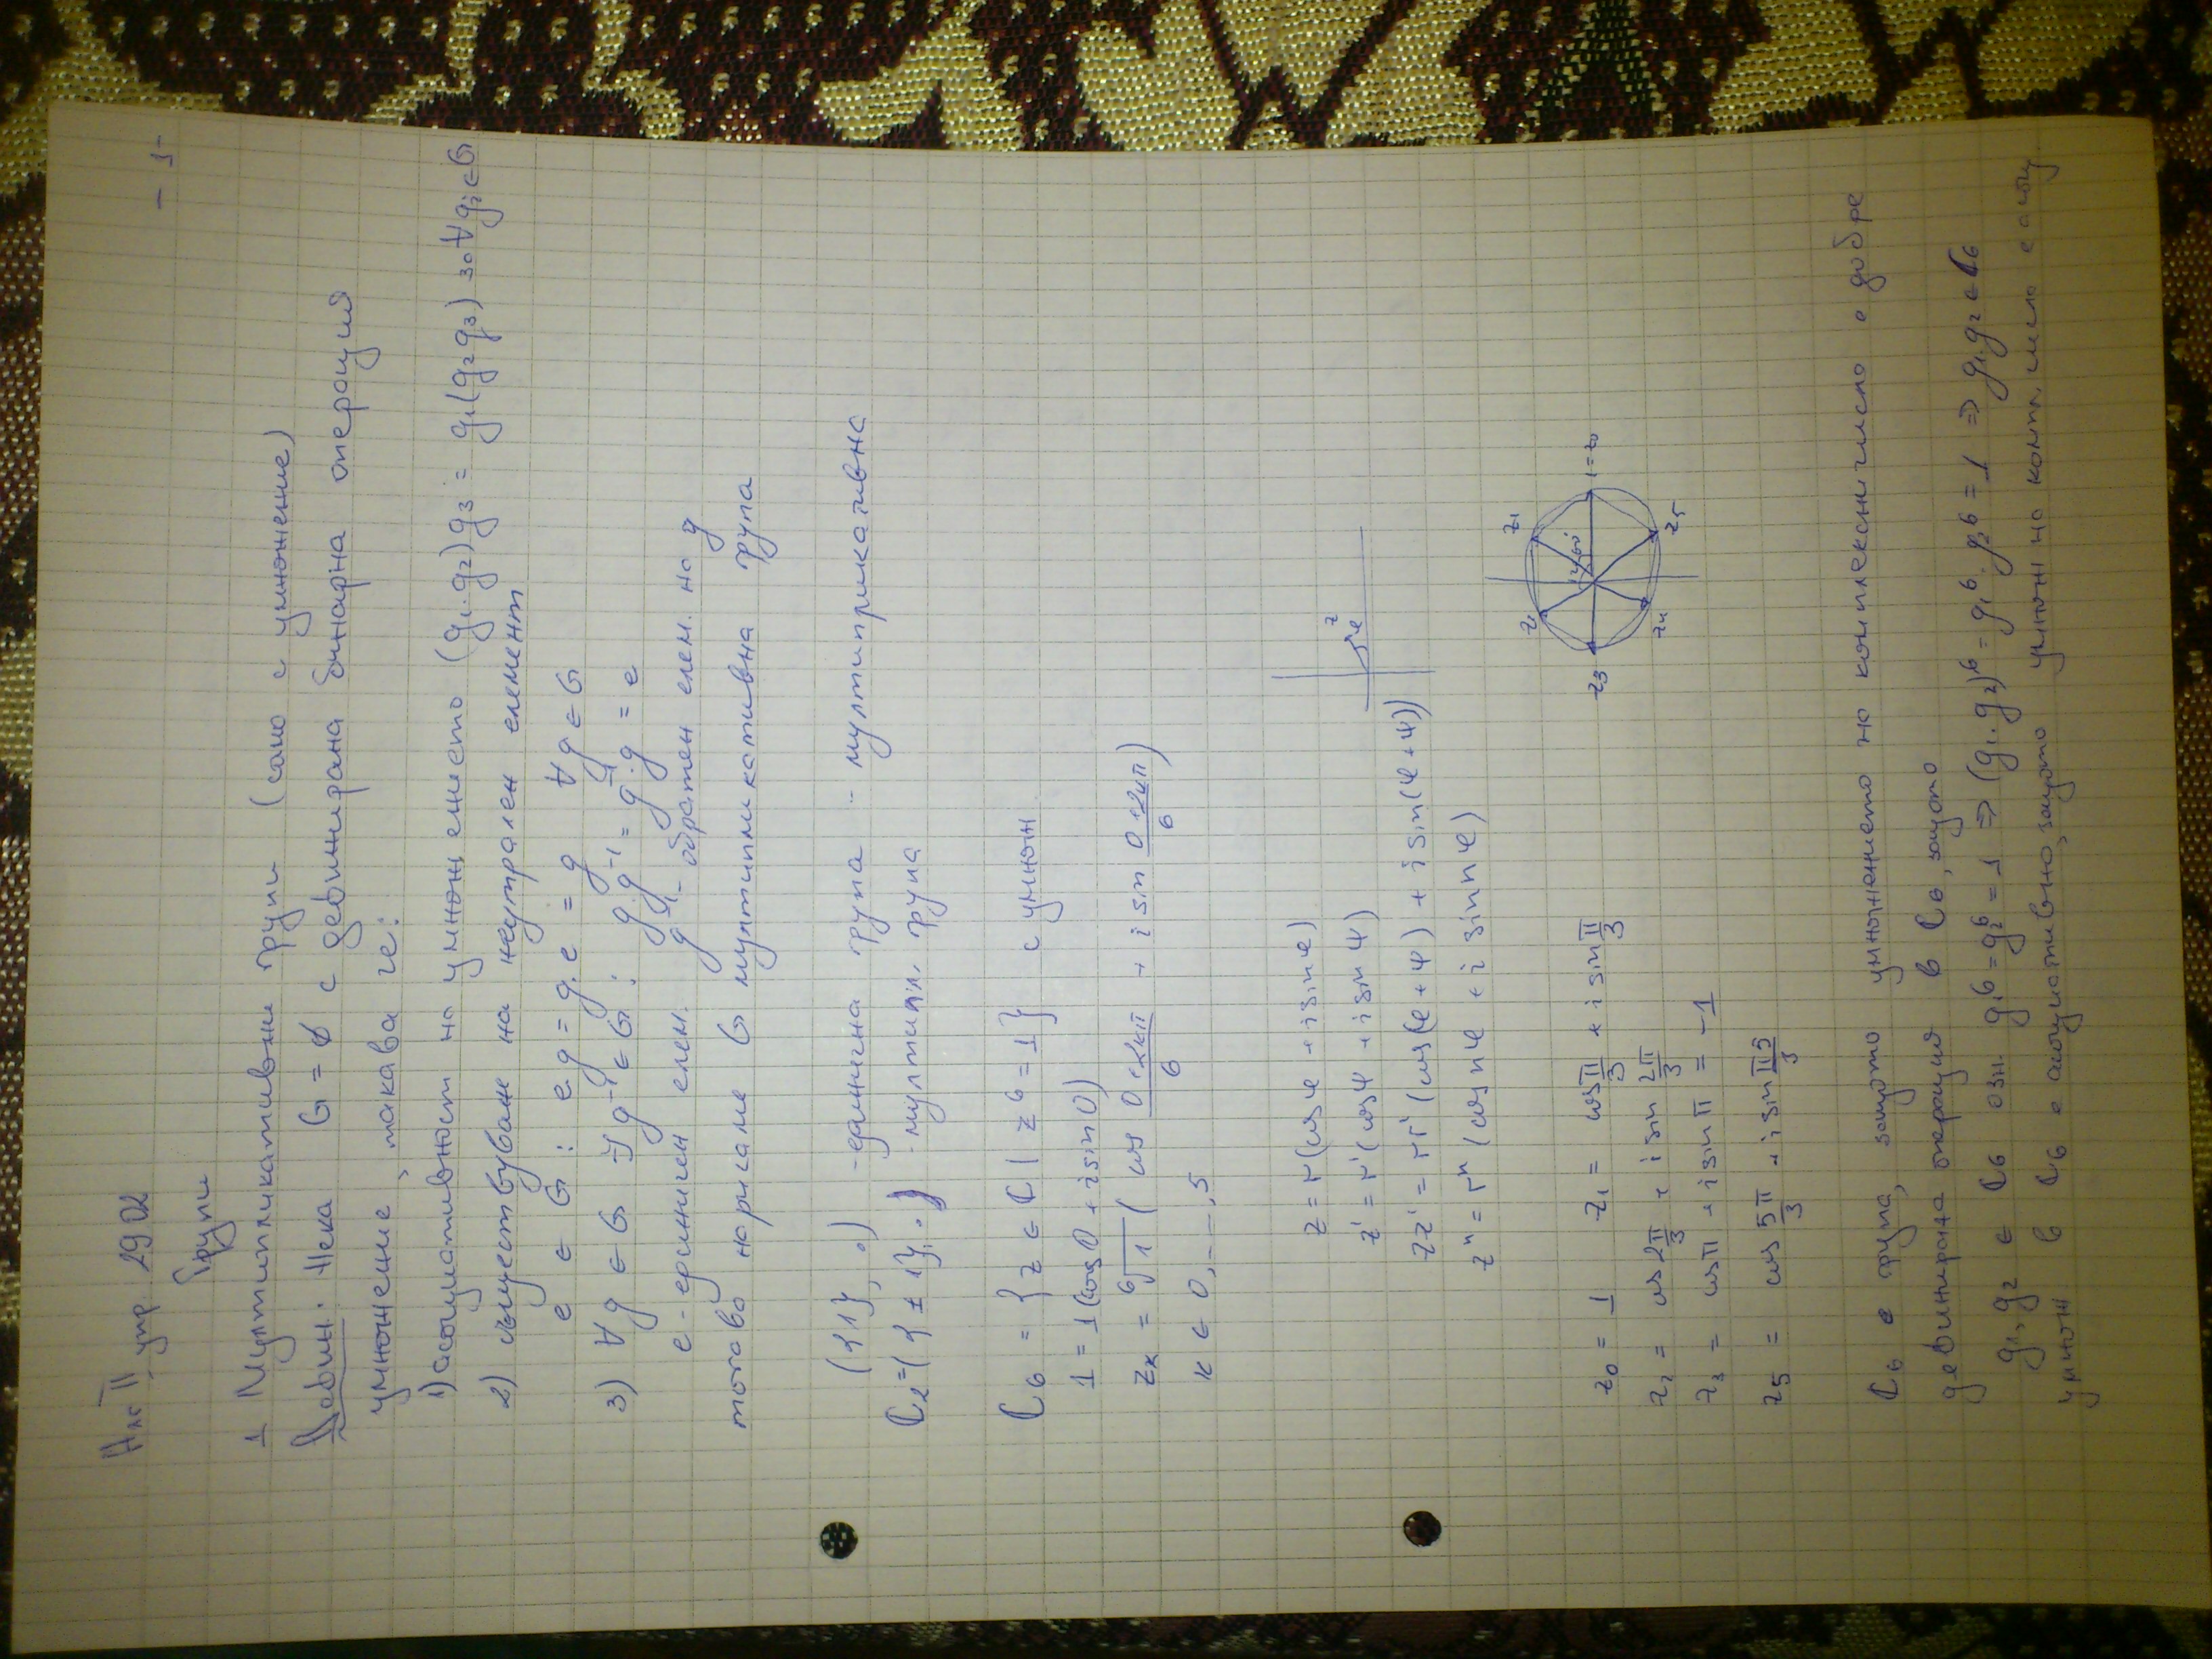 - 1 -
II упр 29 02
Групи
1 Мултипликативни групи (само с умножение)
Дефин: Нека G = ∅ с дефинирана бинарна операция
умножение, такава че:
1) асоциативност на умножението (g₁.g₂)g₃ = g₁(g₂g₃) за ∀ gᵢ ∈ G
2) съществуван на неутрален елемент
e ∈ G : e.g = g.e = g ∀ g ∈ G
3) ∀ g ∈ G ∃ g⁻¹ ∈ G : g.g⁻¹ = g⁻¹.g = e
e - единичен елем. g⁻¹ - обратен елем. на g
тогава наричаме G мултипликативна група
({1}, .) - единична група - мултипликативна
ℂ₂ = ({±1}, .) - мултипл. група
ℂ₆ = {z ∈ ℂ | z⁶ = 1} с умнож
1 = 1 (cos 0 + i sin 0)
zₖ = ⁶√1 (cos (0+2kπ)/6 + i sin (0+2kπ)/6)
k ∈ 0, --, 5
z = r(cos φ + i sin φ)
z
φ
z' = r'(cos ψ + i sin ψ)
zz' = rr'(cos(φ+ψ) + i sin(φ+ψ))
zⁿ = rⁿ (cos nφ + i sin nφ)
z₁
1 = z₀
60°
z₃
z₄
z₅
z₀ = 1 z₁ = cos π/3 + i sin π/3
z₂ = cos 2π/3 + i sin 2π/3
z₃ = cos π + i sin π = -1
z₅ = cos 5π/3 + i sin π5/3
ℂ₆ е група, защото умножението на комплексни число е добре
дефинирана операция в ℂ₆, защото
g₁, g₂ ∈ ℂ₆ озн. g₁⁶ = g₂⁶ = 1 ⇒ (g₁.g₂)⁶ = g₁⁶.g₂⁶ = 1 ⇒ g₁g₂ ∈ ℂ₆
умнож в ℂ₆ е асоциативно, защото умнож на компл. число е асоц.